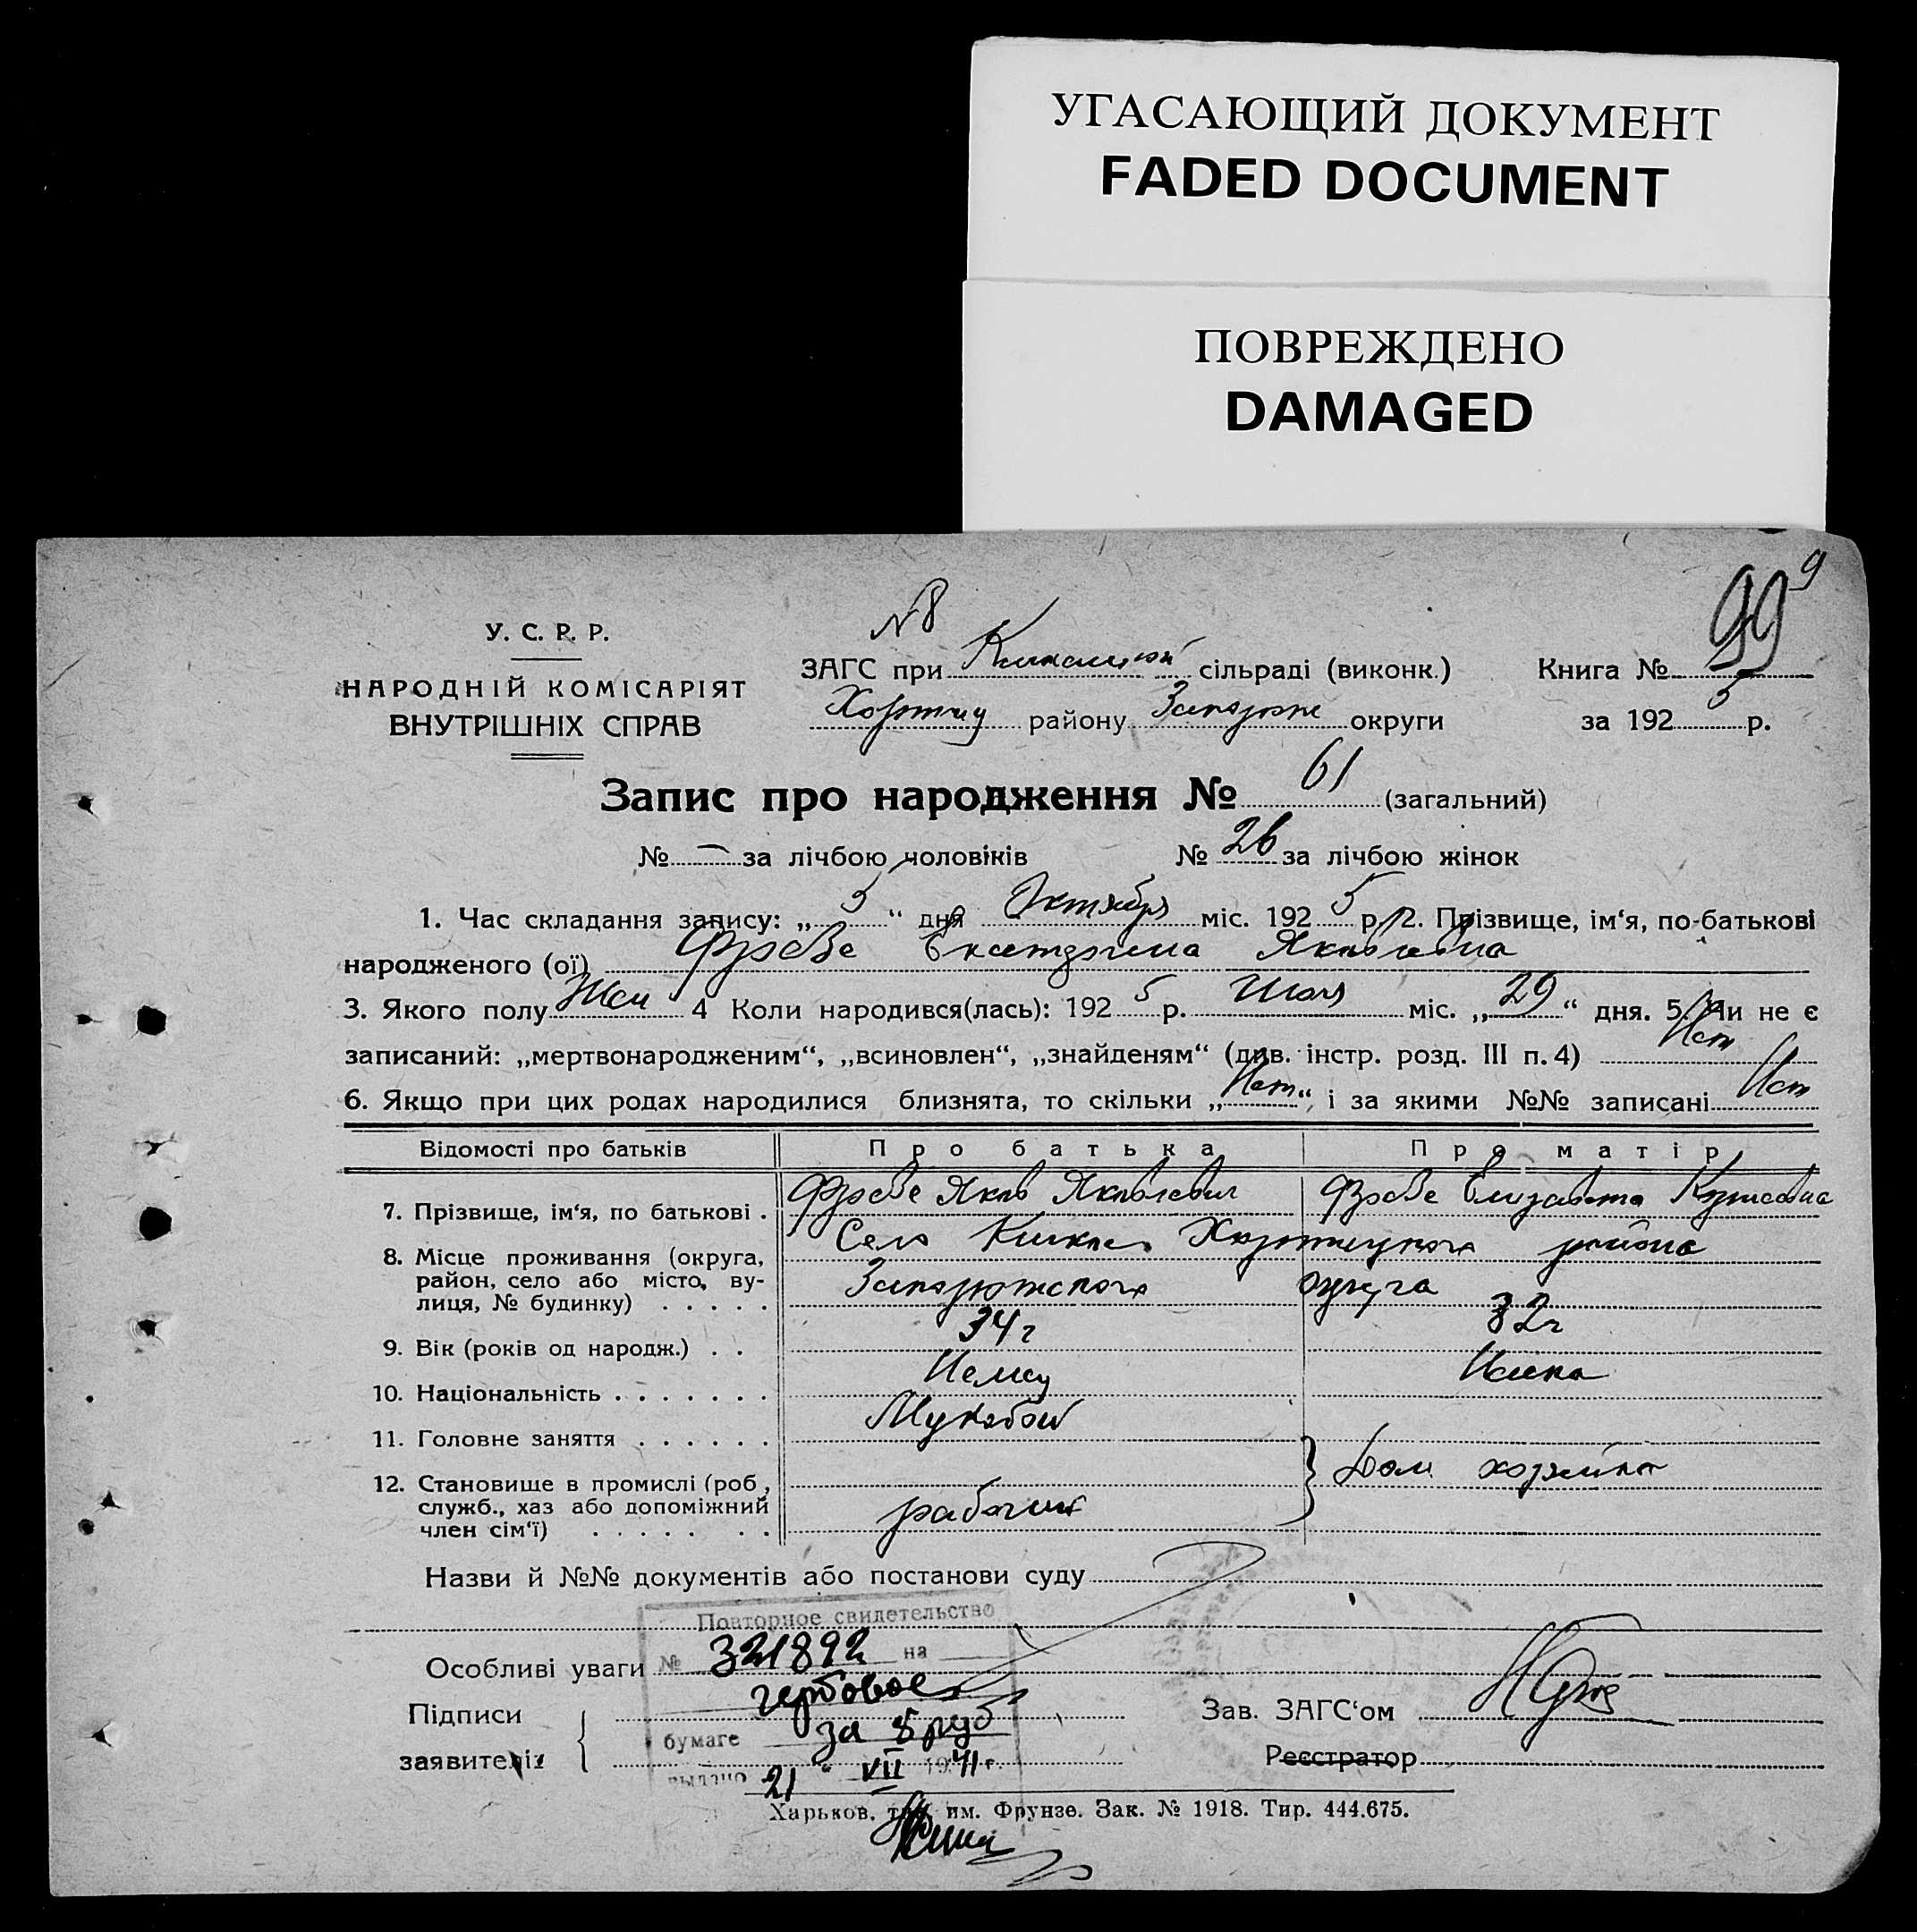 УГАСАЮЩИЙ ДОКУМЕНТ
FADED DOCUMENT
ПОВРЕЖДЕНО
DAMAGED
99 9
№ 8
У. С. Р. Р.
НАРОДНІЙ КОМІСАРІЯТ
ВНУТРІШНІХ СПРАВ
ЗАГС при Кичкасской сільраді (виконк.)
Хортиц району Запорож округи
Книга №
за 192 5 р.
Запис про народження № 61 (загальний)
№ — за лічбою чоловіків № 26 за лічбою жінок
1. Час складання запису: „ 5 “ дня Октября міс. 192 5 р. 2. Прізвище, ім‘я, по-батькові
народженого (ої) Фрезе Екатерина Яковлевна
3. Якого полу Жен 4 Коли народився(лась): 192 5 р. Июля міс. „ 29 “ дня. 5. Чи не є
записаний: „мертвонародженим“, „всиновлен“, „знайденям“ (див. інстр. розд. III п. 4) Нет
6. Якщо при цих родах народилися близнята, то скільки „ Нет “, і за якими №№ записані Нет
Відомості про батьків Про батька Про матір
7. Прізвище, ім‘я, по батькові . Фрезе Яков Яковлевич Фрезе Елизавета Корнеевна
8. Місце проживання (округа, район, село або місто, ву-лиця, № будинку) . . . . . Село Кичкас Хортицкого района
Запорожского округа
9. Вік (років од народж.) . . 34 г 32 г
10. Національність . . . . . . . Немец Немка
11. Головне заняття . . . . . . Мукобой
12. Становище в промислі (роб., служб., хаз або допоміжний член сім‘ї) . . . . . . . рабочий Дом хозяйка
Назви й №№ документів або постанови суду
Повторное свидетельство
Особливі уваги № 321892 на
гербовое
Підписи
заявителів
бумаге за 8 руб
выдано 21 " VII 1941 г.
Зав. ЗАГС‘ом
Реєстратор
Харьков, тип. им. Фрунзе. Зак. № 1918. Тир. 444.675.